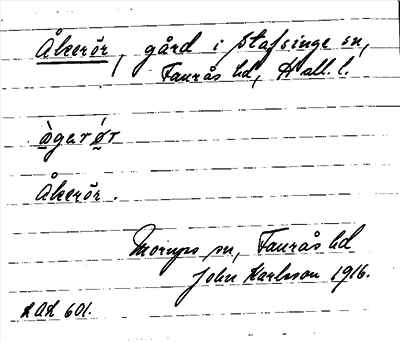 Åkerör, gård i Stafsinge sn,
Faurås hd, Hall. l.
ògərǿr
Åkerör.
Morups sn, Faurås hd
John Karlsson 1916.